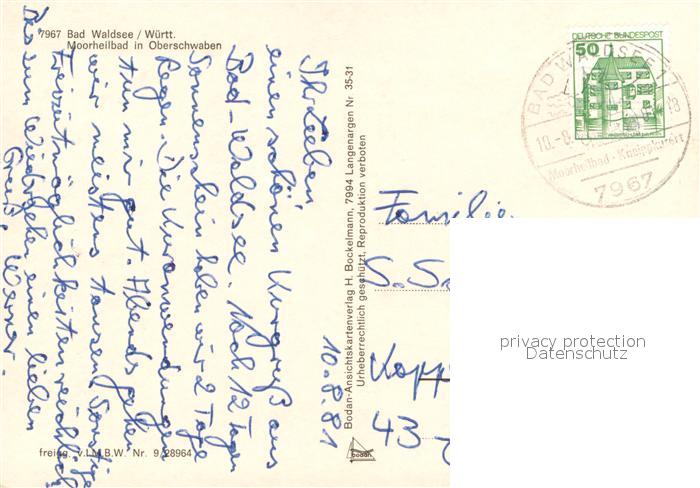 7967 Bad Waldsee / Württ.
Moorheilbad in Oberschwaben
10.8.81
Ihr Lieben,
einen schönen Kurgruß aus
Bad-Waldsee. Nach 12 Tagen
Sonnenschein haben wir 2 Tage
Regen. Die Kuranwendungen
tun mir gut. Abends gehen
wir meistens tanzen, Sonstige
Freizeitmöglichkeiten reichlich
Bis zum Wiedersehen einen lieben
Gruß, Werner.
freigg. v. I.M.B.W. Nr. 9/28964
Bodan-Ansichtskartenverlag H. Bockelmann, 7994 Langenargen Nr. 35-31
Urheberrechtlich geschützt, Reproduktion verboten
bodan
DEUTSCHE BUNDESPOST
50
BAD WALDSEE 1
10.-8.
18
Moorheilbad · Kneippkurort
7967
Familie
S.
43
privacy protection
Datenschutz